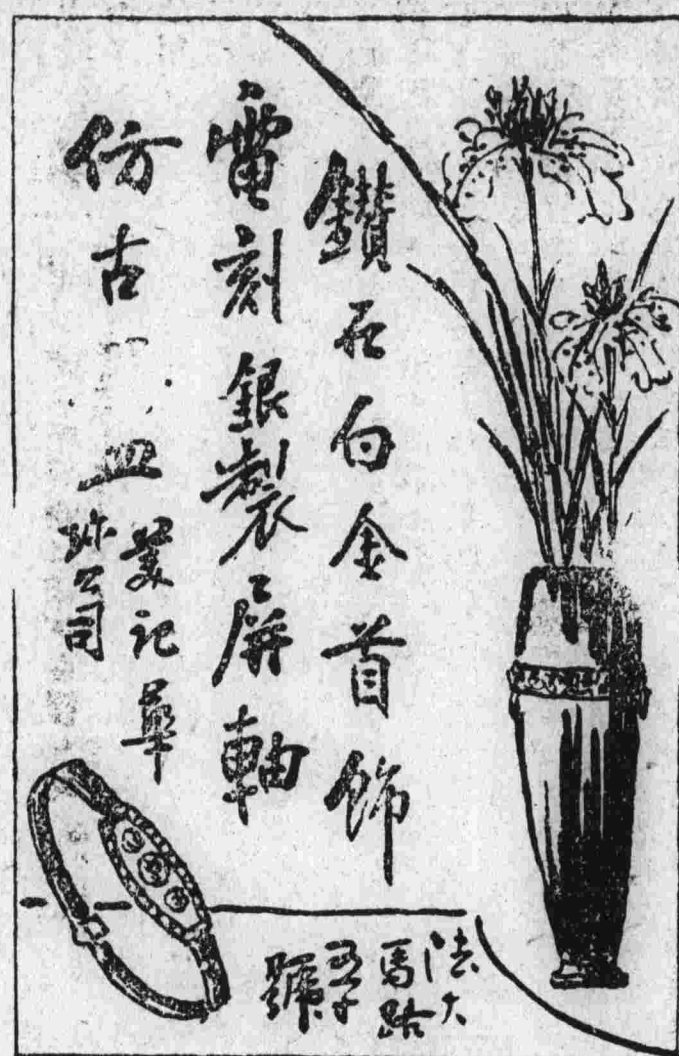 鑽石白金首飾
電刻銀製屏軸
仿古 皿
美記華
珎公司
法大
馬路
號